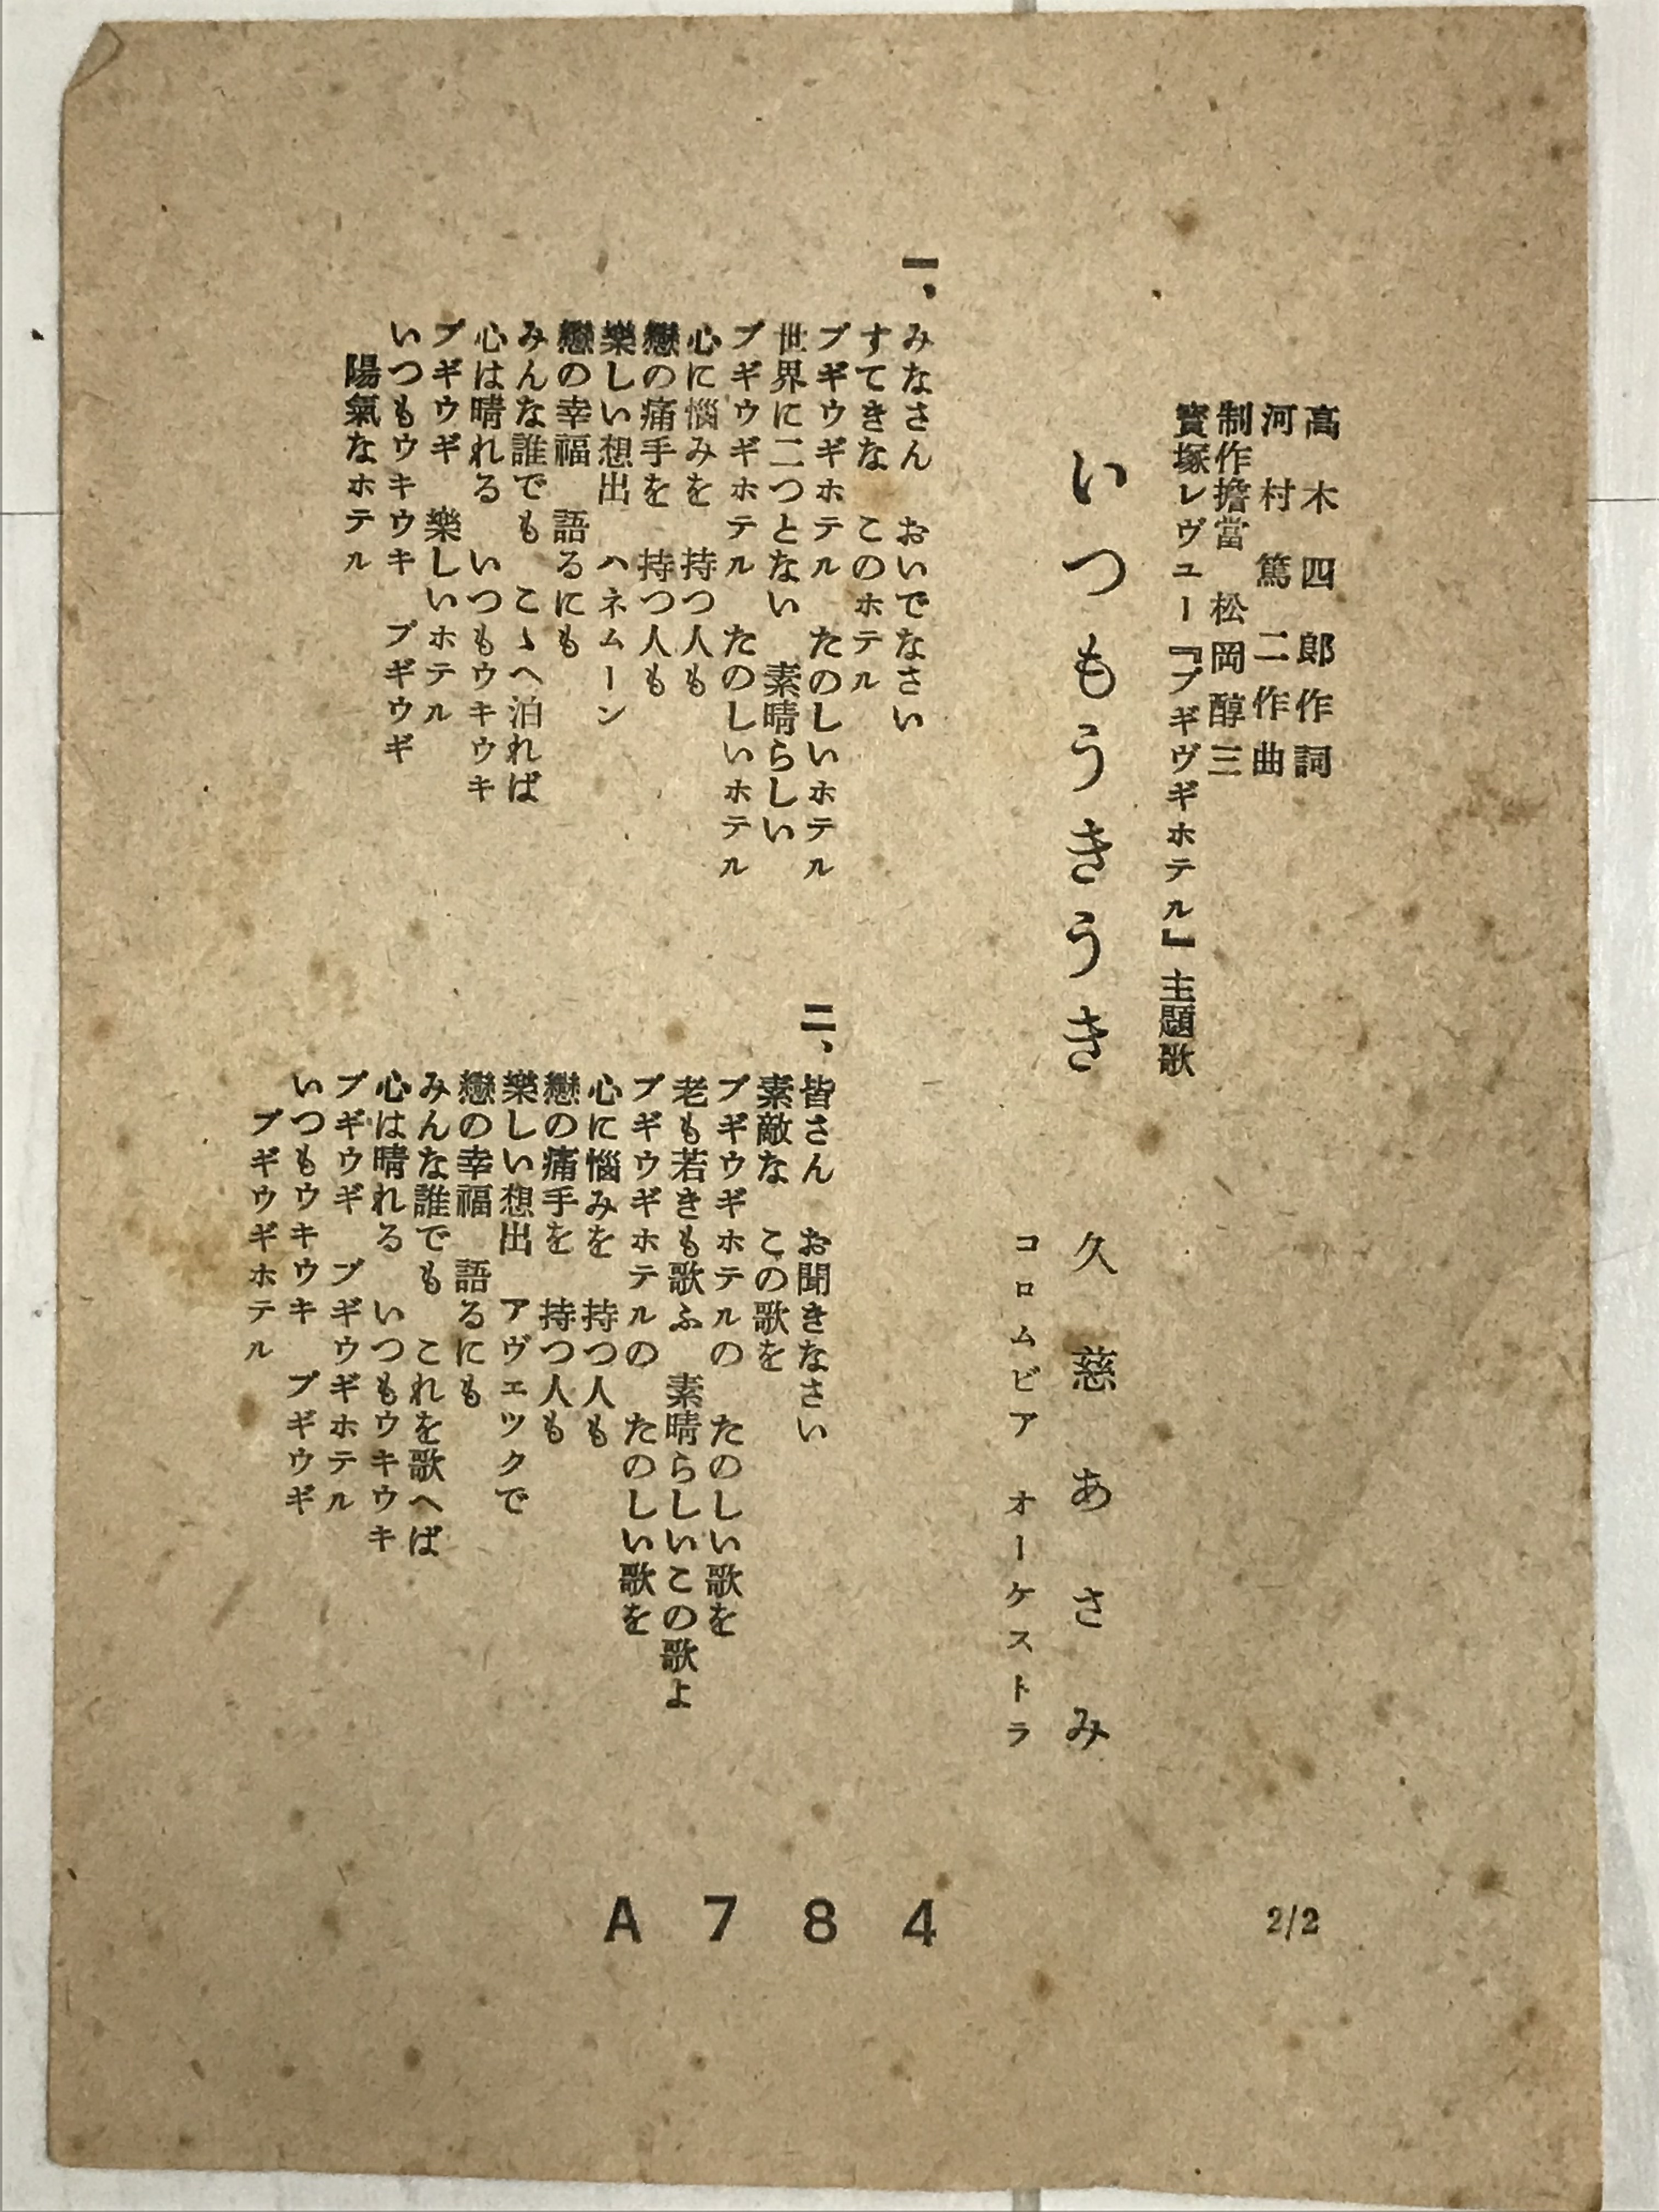 高木四郎作詞
河村篤二作曲
制作擔當 松岡醇三
寶塚レヴユー『ブギヴギホテル』主題歌
いつもうきうき 久慈あさみ
コロムビア オーケストラ
一、
みなさん おいでなさい
すてきな このホテル
ブギウギホテル たのしいホテル
世界に二つとない 素晴らしい
ブギウギホテル たのしいホテル
心に惱みを 持つ人も
戀の痛手を 持つ人も
樂しい想出 ハネムーン
戀の幸福 語るにも
みんな誰でも こゝへ泊れば
心は晴れる いつもウキウキ
ブギウギ 樂しいホテル
いつもウキウキ ブギウギ
陽氣なホテル
二、
皆さん お聞きなさい
素敵な この歌を
ブギウギホテルの たのしい歌を
老も若きも歌ふ 素晴らしいこの歌よ
ブギウギホテルの たのしい歌を
心に惱みを 持つ人も
戀の痛手を 持つ人も
樂しい想出 アヴェツクで
戀の幸福 語るにも
みんな誰でも これを歌へば
心は晴れる いつもウキウキ
ブギウギ ブギウギホテル
いつもウキウキ ブギウギ
ブギウギホテル
A784
2/2